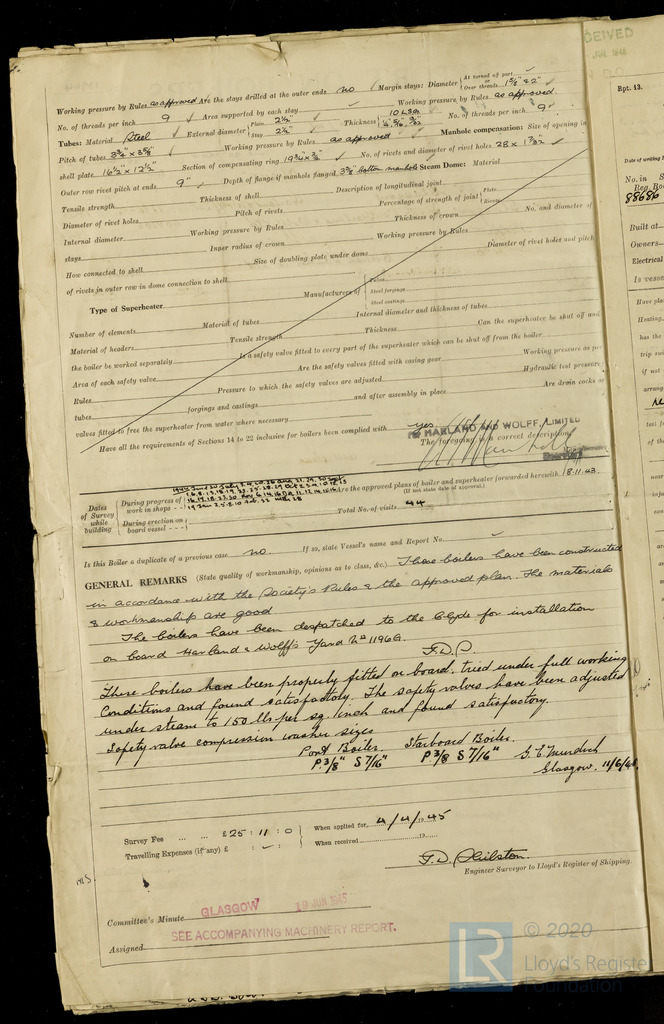 Working pressure by Rules as approved Are the stays drilled at the outer ends no Margin stays: Diameter { At turned off part or Over threads 1 5/8" & 2"
No. of threads per inch 9 Area supported by each stay Working pressure by Rules as approved
Tubes: Material Steel External diameter { Plain 2½" Stay 2½" Thickness { 10 LSG No. of threads per inch 9
Pitch of tubes 3¾" x 3 5/8" Working pressure by Rules as approved Manhole compensation: Size of opening in
shell plate 16½" x 12½" Section of compensating ring No. of rivets and diameter of rivet holes 28 x 1 7/32"
Outer row rivet pitch at ends 9" Depth of flange if manhole flanged 3 3/8" bottom manhole Steam Dome: Material
Tensile strength Thickness of shell Description of longitudinal joint
Diameter of rivet holes Pitch of rivets Percentage of strength of joint { Plate Rivets
Internal diameter Working pressure by Rules Thickness of crown No. and diameter of
stays Inner radius of crown Working pressure by Rules
How connected to shell Size of doubling plate under dome Diameter of rivet holes and pitch
of rivets in outer row in dome connection to shell
Type of Superheater Manufacturers of { Tubes Steel forgings Steel castings
Number of elements Material of tubes Internal diameter and thickness of tubes
Material of headers Tensile strength Thickness Can the superheater be shut off and
the boiler be worked separately Is a safety valve fitted to every part of the superheater which can be shut off from the boiler
Area of each safety valve Are the safety valves fitted with easing gear Working pressure as per
Rules Pressure to which the safety valves are adjusted Hydraulic test pressure
tubes forgings and castings and after assembly in place Are drain cocks or
valves fitted to free the superheater from water where necessary
Have all the requirements of Sections 14 to 22 inclusive for boilers been complied with yes
For HARLAND AND WOLFF, LIMITED
The foregoing is a correct description,
Dates of Survey while building { During progress of work in shops - - Are the approved plans of boiler and superheater forwarded herewith 18.11.43.
(If not state date of approval.)
During erection on board vessel - - - Total No. of visits 44
Is this Boiler a duplicate of a previous case no. If so, state Vessel's name and Report No.
GENERAL REMARKS (State quality of workmanship, opinions as to class, &c.) These boilers have been constructed
in accordance with the Society's Rules & the approved plan. The materials
& workmanship are good
The boilers have been despatched to the Clyde for installation
on board Harland & Wolff's Yard No 1196G.
These boilers have been properly fitted on board, tried under full working
conditions and found satisfactory. The safety valves have been adjusted
under steam to 150 lbs per sq. inch and found satisfactory.
Safety valve compression washer sizes
Port Boiler. Starboard Boiler.
P 3/8" S 7/16" P 3/8 S 7/16"
G. E. Murdoch
Glasgow. 11/6/45
Survey Fee ... ... £25 : 11 : 0 When applied for 4/4/1945
Travelling Expenses (if any) £ : - : When received 19
Engineer Surveyor to Lloyd's Register of Shipping.
Committee's Minute GLASGOW 19 JUN 1945
Assigned SEE ACCOMPANYING MACHINERY REPORT.
Rpt. 13.
Date of writing
No. in
Reg. Bo
88686
Built at
Owners
Electrical
Is vesse
Have pla
Heating
has the
trip su
if not
arrang
© 2020
LR Lloyd's Register
Foundation